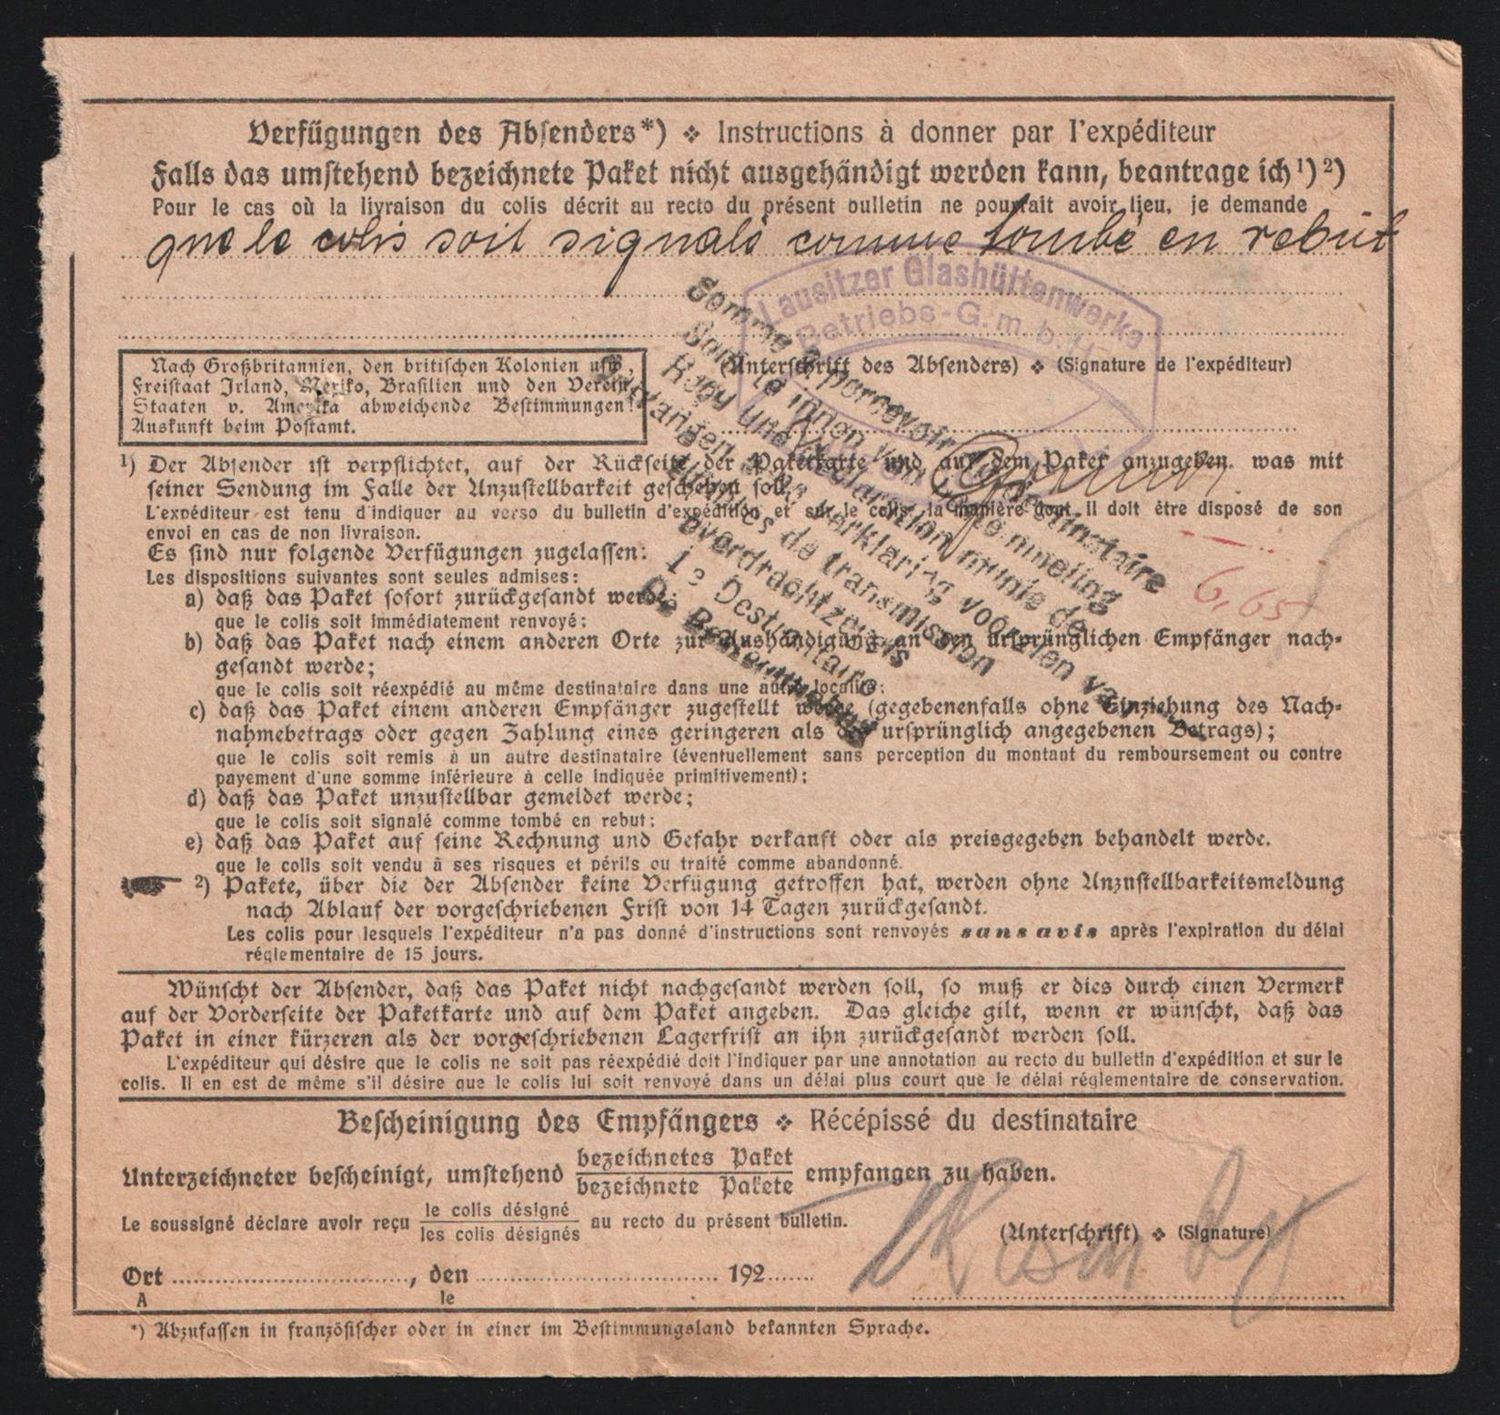 Verfügungen des Absenders*) ❖ Instructions à donner par l'expéditeur
Falls das umstehend bezeichnete Paket nicht ausgehändigt werden kann, beantrage ich ¹) ²)
Pour le cas où la livraison du colis décrit au recto du présent bulletin ne pourrait avoir lieu, je demande
que le colis soit signalé comme tombé en rebut
Lausitzer Glashüttenwerke
Betriebs-G.m.b.H.
Nach Großbritannien, den britischen Kolonien usw.,
Freistaat Irland, Mexiko, Brasilien und den Verein.
Staaten v. Amerika abweichende Bestimmungen!
Auskunft beim Postamt.
(Unterschrift des Absenders) ❖ (Signature de l'expéditeur)
Somme à percevoir destinataire
Som te innen
muni de
verklaring voorzien van
de transmission
overdrachtzegels
Le Destinataire
De
¹) Der Absender ist verpflichtet, auf der Rückseite der Paketkarte und auf dem Paket anzugeben, was mit
seiner Sendung im Falle der Unzustellbarkeit geschehen soll.
L'expéditeur est tenu d'indiquer au verso du bulletin d'expédition et sur le colis, la manière dont il doit être disposé de son
envoi en cas de non livraison.
Es sind nur folgende Verfügungen zugelassen:
Les dispositions suivantes sont seules admises:
6,65
a) daß das Paket sofort zurückgesandt werde;
que le colis soit immédiatement renvoyé;
b) daß das Paket nach einem anderen Orte zur Aushändigung an den ursprünglichen Empfänger nach-
gesandt werde;
que le colis soit réexpédié au même destinataire dans une autre localité;
c) daß das Paket einem anderen Empfänger zugestellt werde (gegebenenfalls ohne Einziehung des Nach-
nahmebetrags oder gegen Zahlung eines geringeren als des ursprünglich angegebenen Betrags);
que le colis soit remis à un autre destinataire (éventuellement sans perception du montant du remboursement ou contre
payement d'une somme inférieure à celle indiquée primitivement);
d) daß das Paket unzustellbar gemeldet werde;
que le colis soit signalé comme tombé en rebut;
e) daß das Paket auf seine Rechnung und Gefahr verkauft oder als preisgegeben behandelt werde.
que le colis soit vendu à ses risques et périls ou traité comme abandonné.
²) Pakete, über die der Absender keine Verfügung getroffen hat, werden ohne Unzustellbarkeitsmeldung
nach Ablauf der vorgeschriebenen Frist von 14 Tagen zurückgesandt.
Les colis pour lesquels l'expéditeur n'a pas donné d'instructions sont renvoyés sans avis après l'expiration du délai
réglementaire de 15 jours.
Wünscht der Absender, daß das Paket nicht nachgesandt werden soll, so muß er dies durch einen Vermerk
auf der Vorderseite der Paketkarte und auf dem Paket angeben. Das gleiche gilt, wenn er wünscht, daß das
Paket in einer kürzeren als der vorgeschriebenen Lagerfrist an ihn zurückgesandt werden soll.
L'expéditeur qui désire que le colis ne soit pas réexpédié doit l'indiquer par une annotation au recto du bulletin d'expédition et sur le
colis. Il en est de même s'il désire que le colis lui soit renvoyé dans un délai plus court que le délai réglementaire de conservation.
Bescheinigung des Empfängers ❖ Récépissé du destinataire
Unterzeichneter bescheinigt, umstehend bezeichnetes Paket / bezeichnete Pakete empfangen zu haben.
Le soussigné déclare avoir reçu le colis désigné / les colis désignés au recto du présent bulletin.
(Unterschrift) ❖ (Signature)
Ort ............, den ............ 192......
A le
*) Abzufassen in französischer oder in einer im Bestimmungsland bekannten Sprache.